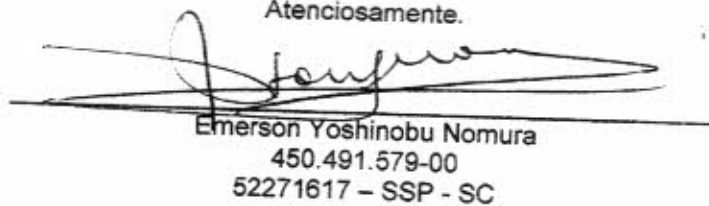 Atenciosamente.
Emerson Yoshinobu Nomura
450.491.579-00
52271617 – SSP - SC